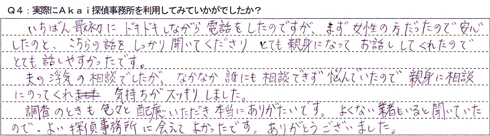 Q4：実際にAkai探偵事務所を利用してみていかがでしたか？
いちばん最初にドキドキしながら電話をしたのですが、まず女性の方だったので安心
したのと、こちらの話をしっかり聞いてくださり とても親身になって お話ししてくれたので
とても話しやすかったです。
夫の浮気の相談でしたが、なかなか誰にも相談できず悩んでいたので 親身に相談
にのってくれ 気持ちがスッキリしました。
調査のときも色々と配慮いただき本当にありがたいです。よくない業者もいると聞いていた
ので、よい探偵事務所に会えて よかったです。ありがとうございました。